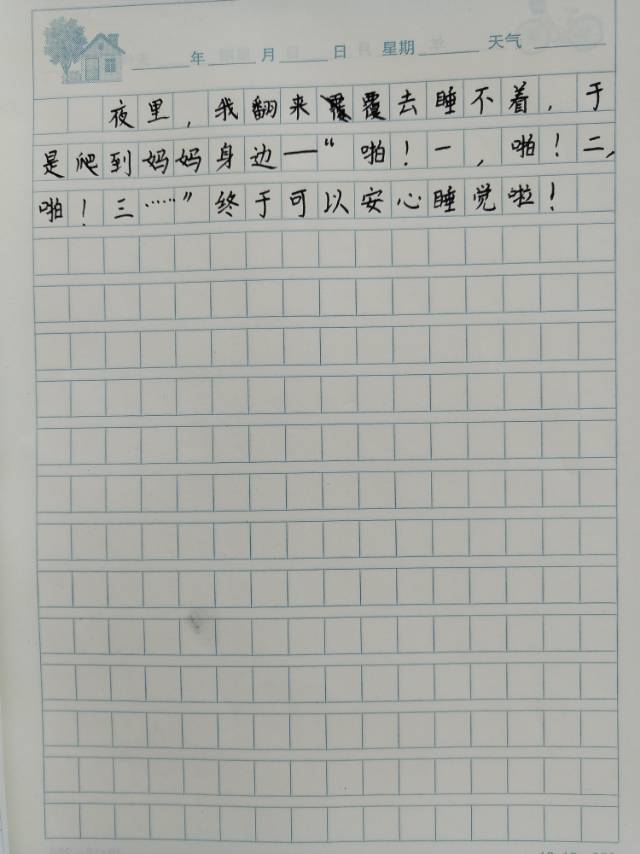 年 月 日 星期 天气
夜里，我翻来覆去睡不着，于
是爬到妈妈身边—“啪！一，啪！二，
啪！三……”终于可以安心睡觉啦！